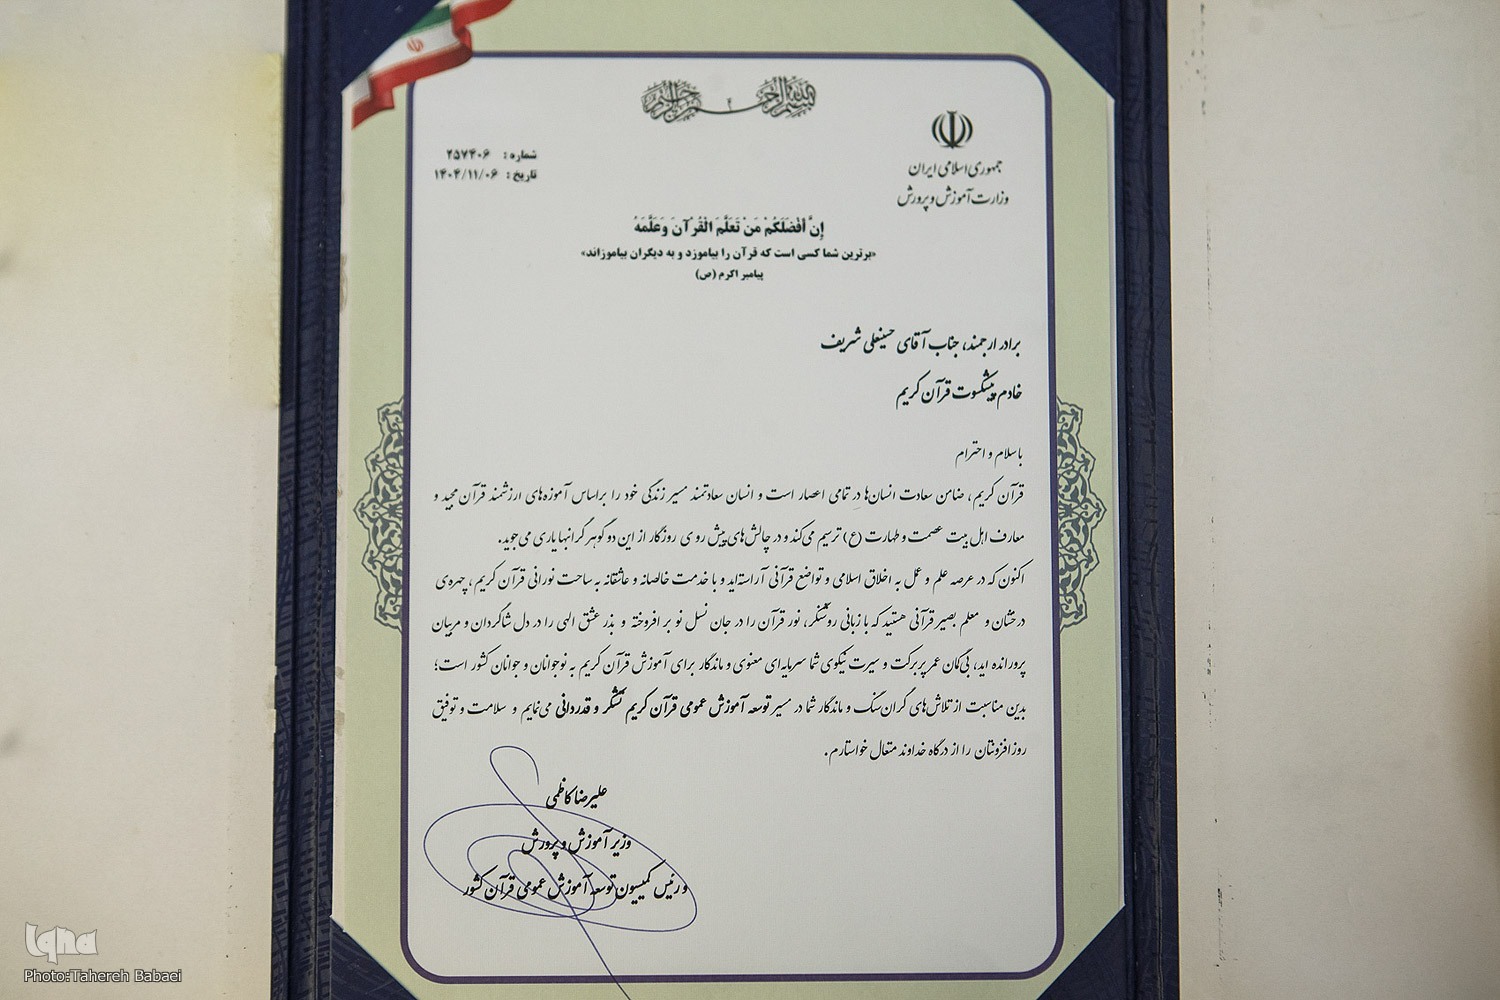 بسم الله الرحمن الرحیم
جمهوری اسلامی ایران
وزارت آموزش و پرورش
شماره : ۲۵۷۴۰۶
تاریخ : ۱۴۰۴/۱۱/۰۶
إِنَّ أَفْضَلَكُمْ مَنْ تَعَلَّمَ الْقُرْآنَ وَعَلَّمَهُ
«برترین شما کسی است که قرآن را بیاموزد و به دیگران بیاموزاند»
پیامبر اکرم (ص)
برادر ارجمند، جناب آقای حسینعلی شریف
خادم پیشکسوت قرآن کریم
با سلام و احترام
قرآن کریم، ضامن سعادت انسان‌ها در تمامی اعصار است و انسان سعادتمند مسیر زندگی خود را براساس آموزه‌های ارزشمند قرآن مجید و
معارف اهل بیت عصمت و طهارت (ع) ترسیم می‌کند و در چالش‌های پیش روی روزگار از این دو گوهر گرانبها یاری می‌جوید.
اکنون که در عرصه علم و عمل به اخلاق اسلامی و تواضع قرآنی آراسته‌اید و با خدمت خالصانه و عاشقانه به ساحت نورانی قرآن کریم، چهره‌ی
درخشان و معلم بصیر قرآنی هستید که با زبانی روشنگر، نور قرآن را در جان نسل نو بر افروخته و بذر عشق الهی را در دل شاگردان و مربیان
پرورانده اید، بی‌گمان عمر پربرکت و سیرت نیکوی شما سرمایه‌ای معنوی و ماندگار برای آموزش قرآن کریم به نوجوانان و جوانان کشور است؛
بدین مناسبت از تلاش‌های گران‌سنگ و ماندگار شما در مسیر توسعه آموزش عمومی قرآن کریم تشکر و قدردانی می‌نمایم و سلامت و توفیق
روزافزونتان را از درگاه خداوند متعال خواستارم.
علیرضا کاظمی
وزیر آموزش و پرورش
و رئیس کمیسیون توسعه آموزش عمومی قرآن کشور
iqna
Photo:Tahereh Babaei